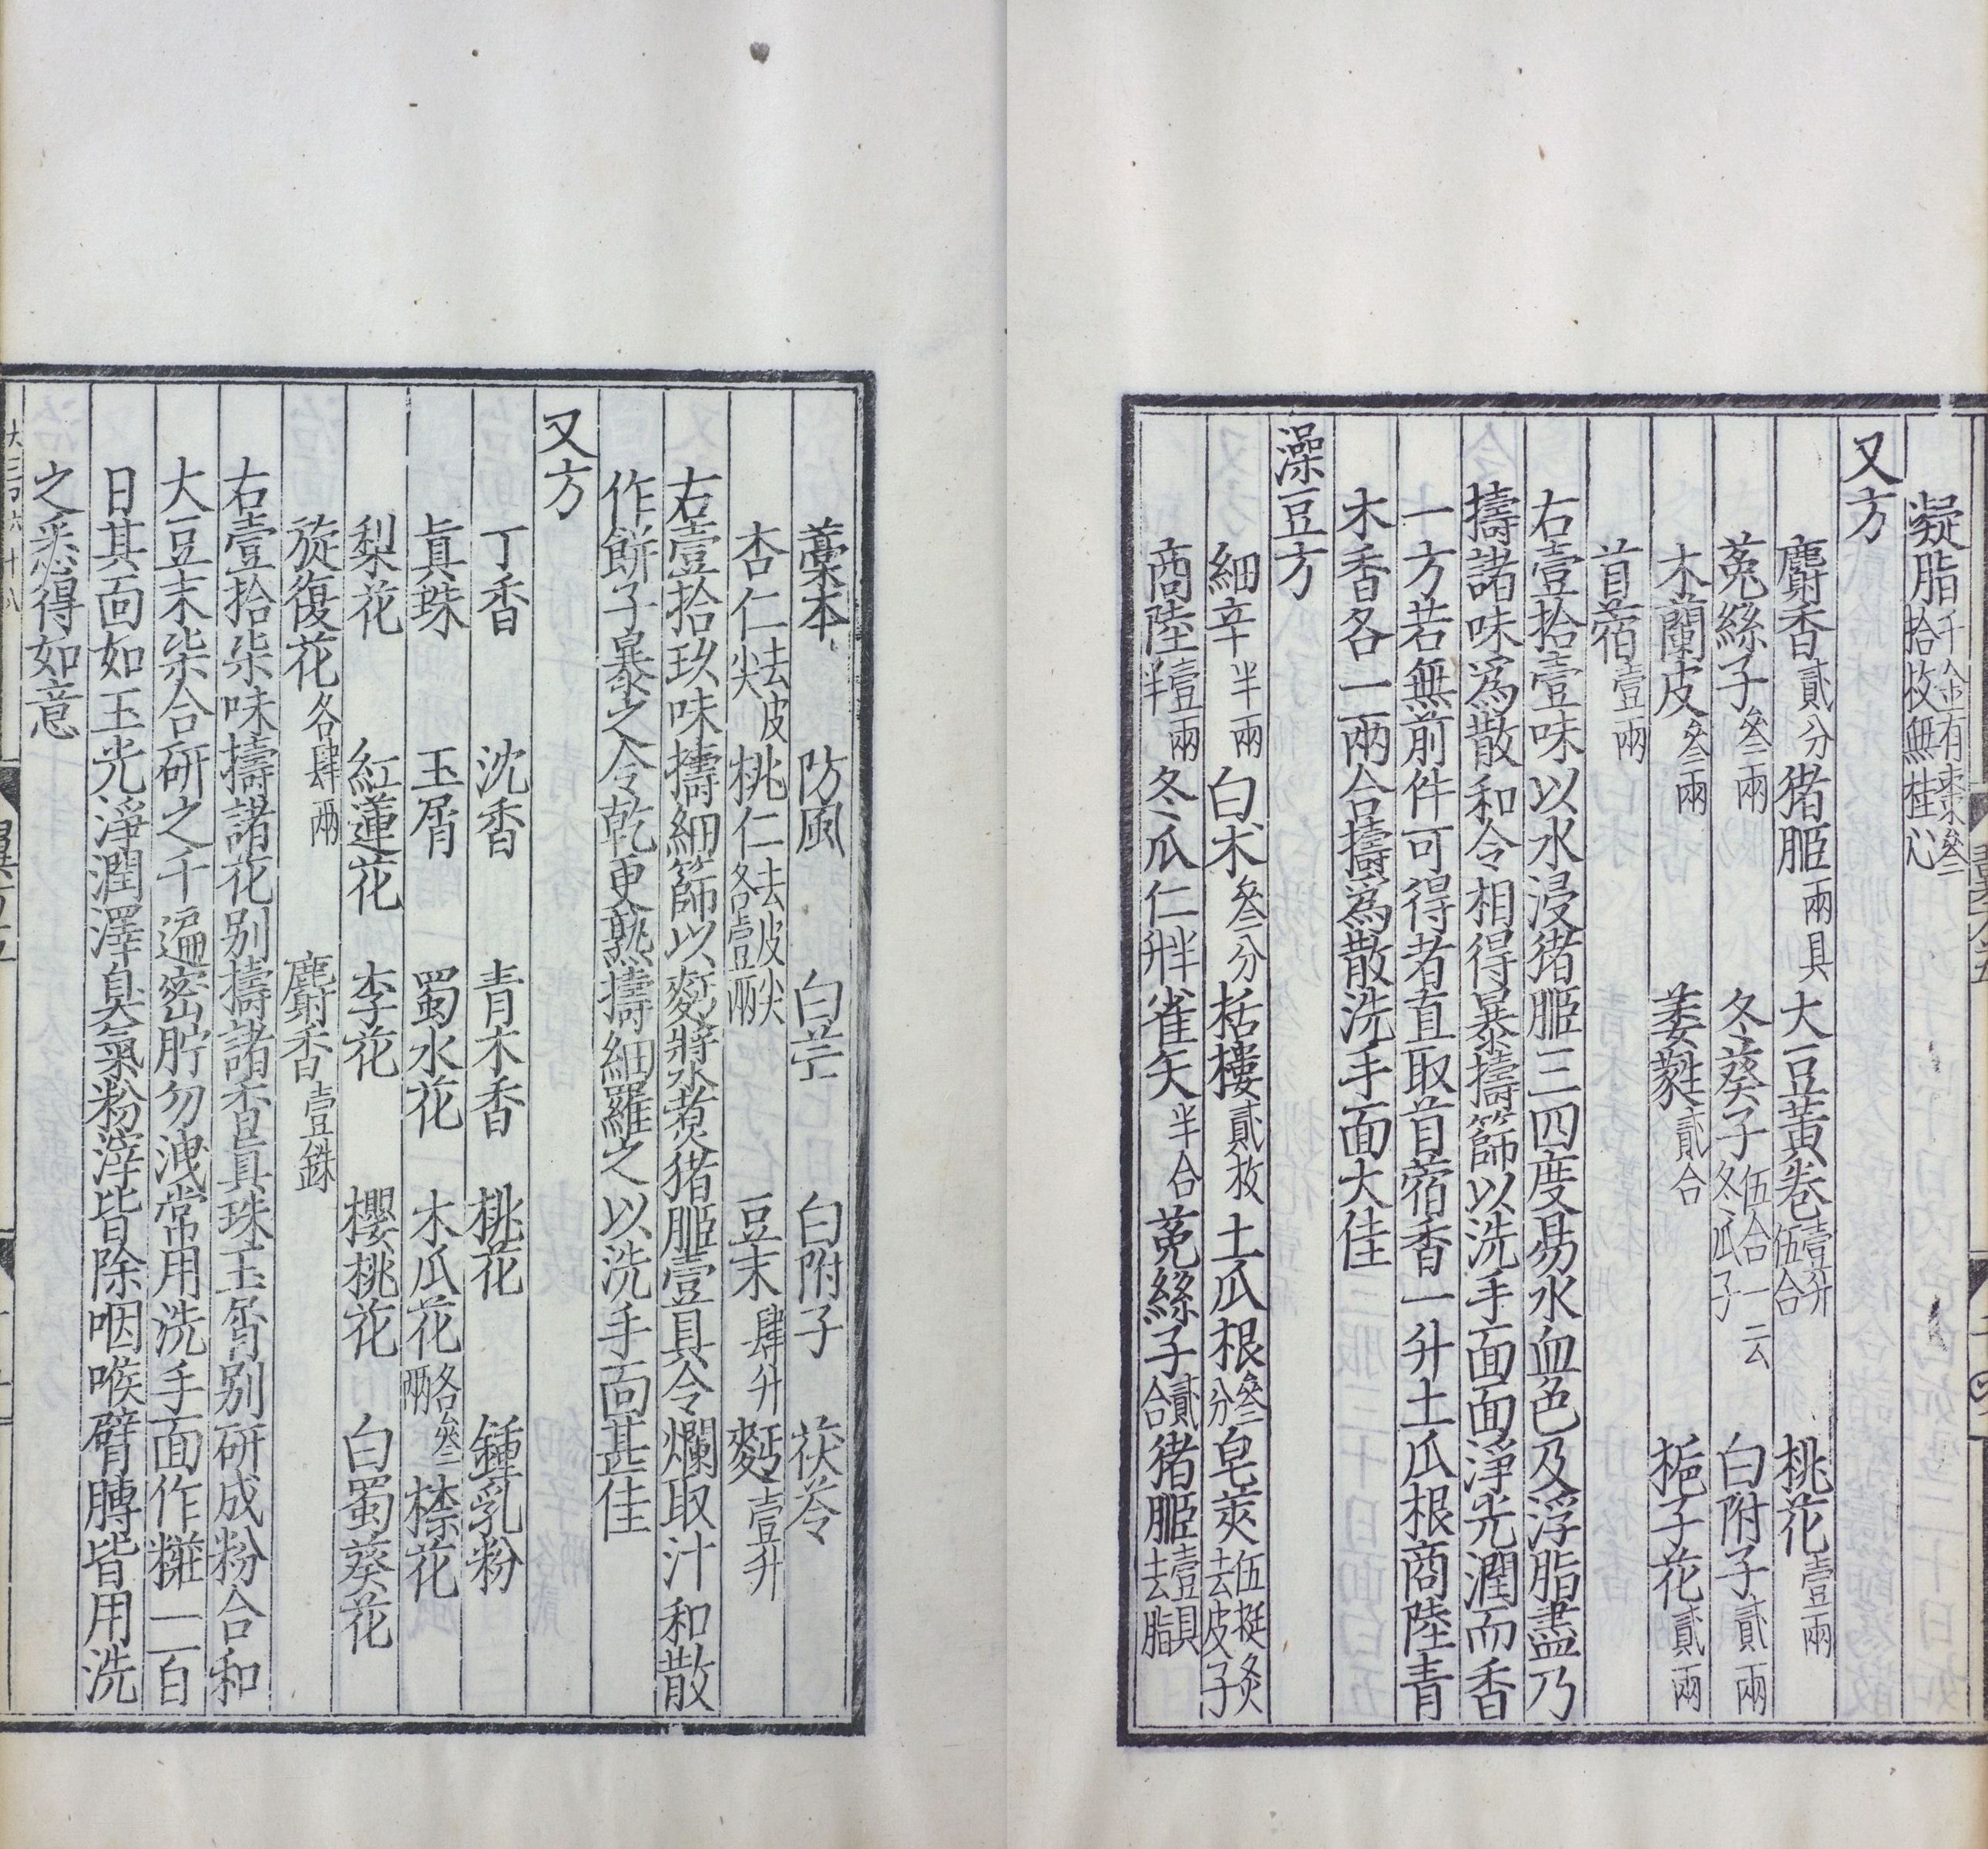 凝脂千金有棗叄拾枚無桂心
又方
麝香貳分 猪胵兩具 大豆黃卷壹升伍合 桃花壹兩
菟絲子叄兩 冬葵子伍合一云冬瓜子 白附子貳兩
木蘭皮叄兩 萎蕤貳合 梔子花貳兩
苜蓿壹兩
右壹拾壹味以水浸猪胵三四度易水血色及浮脂盡乃
擣諸味爲散和令相得暴擣篩以洗手面面淨光潤而香
一方若無前件可得者直取苜蓿香一升土瓜根商陸青
木香各一兩合擣爲散洗手面大佳
澡豆方
細辛半兩 白术叄分 栝樓貳枚 土瓜根叄分 皂莢伍挺炙去皮子
商陸壹兩半 冬瓜仁半升 雀矢半合 菟絲子貳合 猪胵壹具去脂
藁本 防風 白芷 白附子 茯苓
杏仁去皮尖 桃仁去皮尖各壹兩 豆末肆升 麪壹升
右壹拾玖味擣細篩以麪漿水煮猪胵壹具令爛取汁和散
作餅子暴之令乾更熟擣細羅之以洗手面甚佳
又方
丁香 沈香 青木香 桃花 鍾乳粉
眞珠 玉屑 蜀水花 木瓜花各叄兩 㮈花
梨花 紅蓮花 李花 櫻桃花 白蜀葵花
旋復花各肆兩 麝香壹銖
右壹拾柒味擣諸花别擣諸香眞珠玉屑别研成粉合和
大豆末柒合研之千遍密貯勿洩常用洗手面作糚一百
日其面如玉光淨潤澤臭氣粉滓皆除咽喉臂膊皆用洗
之悉得如意